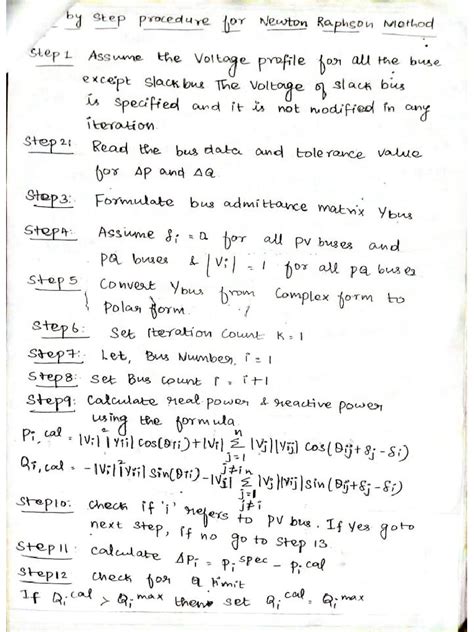 by Step procedure for Newton Raphson Method
Step 1 Assume the Voltage profile for all the buse
except slack bus The Voltage of slack bus
is specified and it is not modified in any
iteration
Step 2: Read the bus data and tolerance value
for ΔP and ΔQ
Step 3: Formulate bus admittance matrix Ybus
Step 4: Assume δi = 0 for all PV buses and
PQ buses & |Vi| = 1 for all PQ buses
Step 5 Convert Ybus from Complex form to
Polar form.
Step 6: Set Iteration Count k = 1
Step 7: Let, Bus Number, i = 1
Step 8: Set Bus Count i = i+1
Step 9: Calculate real power & reactive power
using the formula
Pi, cal = |Vi|² |Yii| cos(θii) + |Vi| Σ |Vj||Yij| cos(θij+δj-δi)
n
j=1
j≠i
Qi, cal = -|Vi|² |Yii| sin(θii) - |Vi| Σ |Vj||Yij| sin(θij+δj-δi)
n
j=1
j≠i
Step 10: check if 'i' refers to PV bus. If Yes goto
next step, if no go to Step 13
Step 11: Calculate ΔPi = Pi spec - Pi cal
Step 12 Check for Q limit
If Qi cal > Qi max then set Qi cal = Qi max